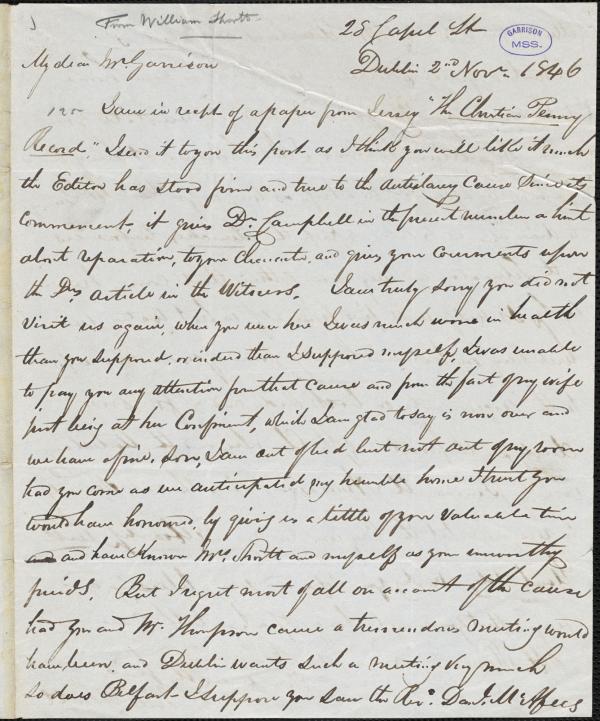 From William Shortt
28 Capel St
GARRISON
MSS.
My dear Mr Garrison
Dublin 2nd Novr. 1846
I am in recpt of a paper from Jersey "The Christian Penny
Record," I send it to you this post as I think you will like it much
the Editor has stood firm and true to the antislavery cause since its
Commencemt. it gives Dr. Campbell in the present number a hint
about reparation, to your Character, and gives your Comments upon
the Drs article in the Witness. I am truly sorry you did not
visit us again, when you were here I was much worse in health
than you supposed, or indeed than I supposed myself, I was unable
to pay you any attention from that cause and from the fact of my wife
just being at her Confinemt, which I am glad to say is now over and
we have a fine Son, I am out of bed but not out of my room
had you come as we anticipated my humble home I trust you
would have honoured, by giving us a little of your valuable time
and and have known Mrs. Shortt and myself as your unworthy
friends. But I regret most of all on account of the cause
had you and Mr. Thompson came a tremendous meeting would
have been, and Dublin wants such a meeting very much
so does Belfast I suppose you saw the Revd. Danl. McAfees